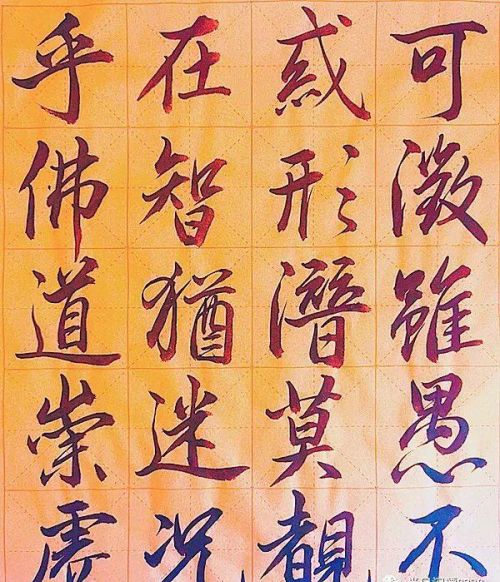 可徵雖愚不
惑形潛莫覩
在智猶迷況
乎佛道崇虛